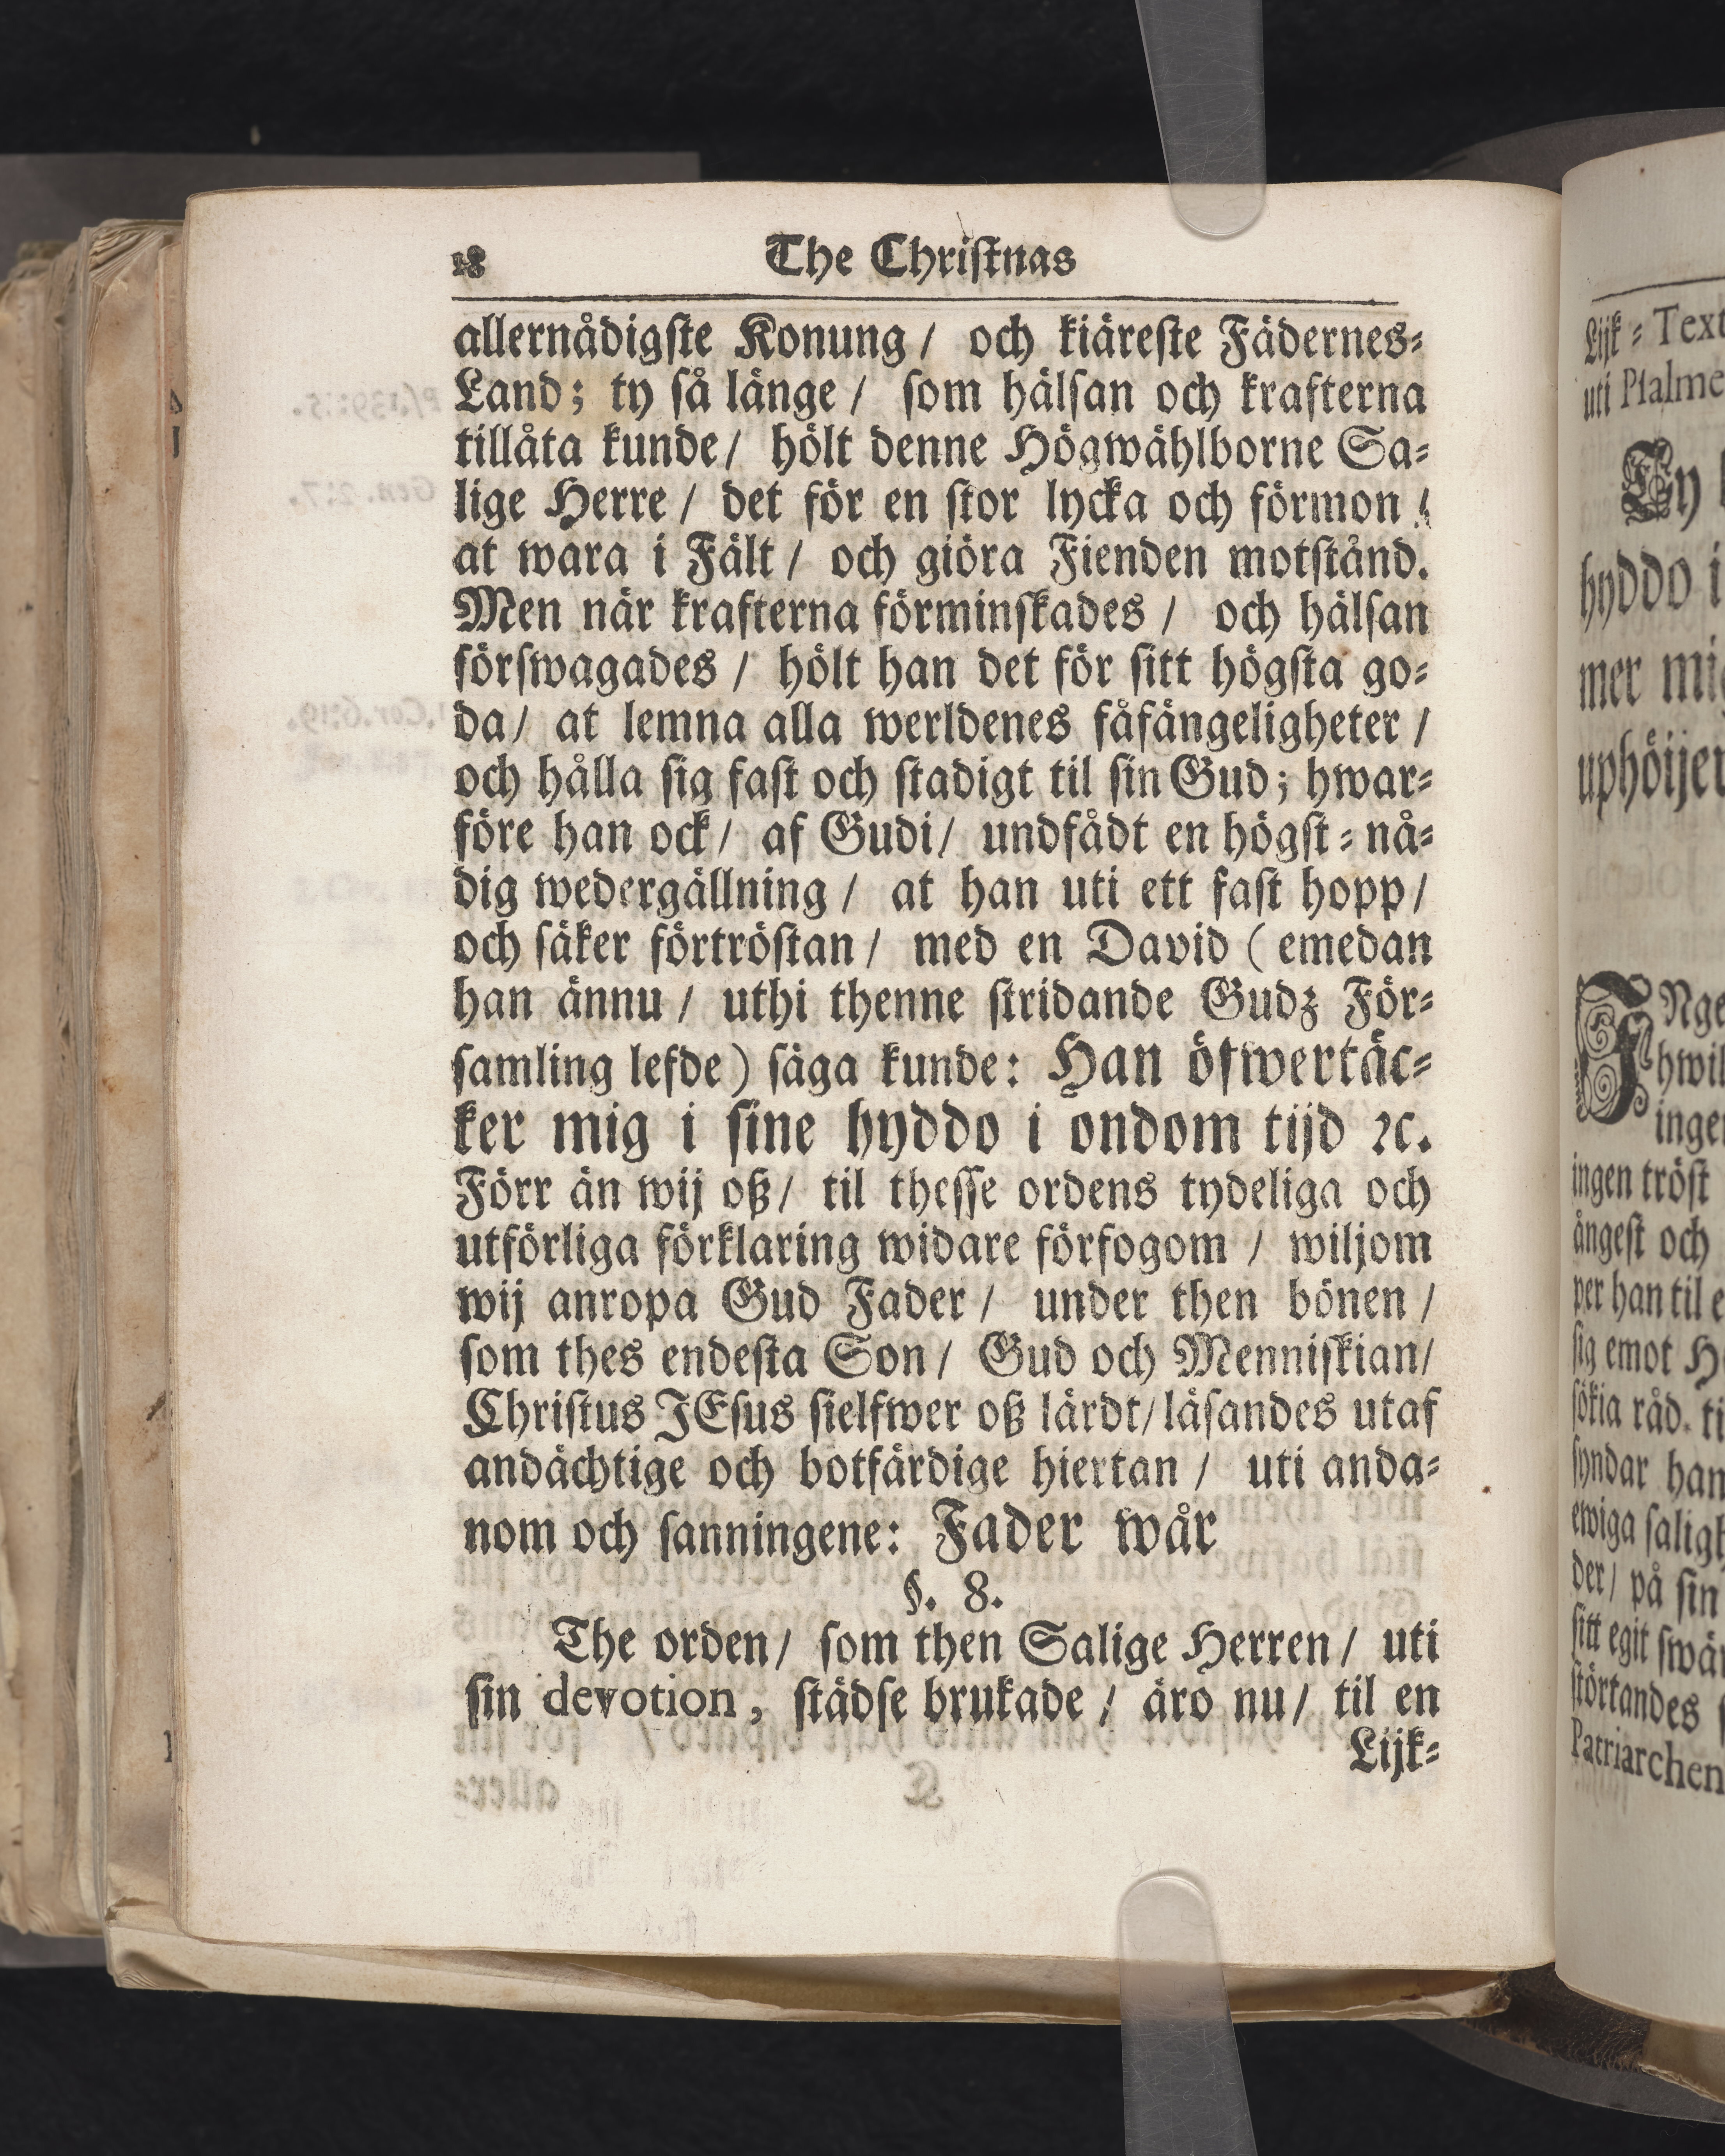 18 The Christnas
allernådigste Konung / och kiäreste Fädernes-
Land; ty så länge / som hälsan och krafterna
tillåta kunde / hölt denne Högwählborne Sa-
lige Herre / det för en stor lycka och förmon /
at wara i Fält / och giöra Fienden motstånd.
Men när krafterna förminskades / och hälsan
förswagades / hölt han det för sitt högsta go-
da / at lemna alla werldenes fåfängeligheter /
och hålla sig fast och stadigt til sin Gud; hwar-
före han ock / af Gudi / undfådt en högst-nå-
dig wedergällning / at han uti ett fast hopp /
och säker förtröstan / med en David (emedan
han ännu / uthi thenne stridande Gudz För-
samling lefde) säga kunde: Han öfwertäc-
ker mig i sine hyddo i ondom tijd ꝛc.
Förr än wij oß / til thesse ordens tydeliga och
utförliga förklaring widare förfogom / wiljom
wij anropa Gud Fader / under then bönen /
som thes endesta Son / Gud och Menniskian /
Christus JEsus sielfwer oß lärdt / läsandes utaf
andächtige och botfärdige hiertan / uti anda-
nom och sanningene: Fader wår
§. 8.
The orden / som then Salige Herren / uti
sin devotion, städse brukade / äro nu / til en
Lijk-
Lijk-Text
uti Psalme
Ty
hyddo i
mer mig
uphöijer
INge
hwil
inge
ingen tröst
ångest och
per han til e
sig emot
sökia råd. ti
syndar han
ewiga saligh
der / på sin
sitt egit swär
störtandes
Patriarchen